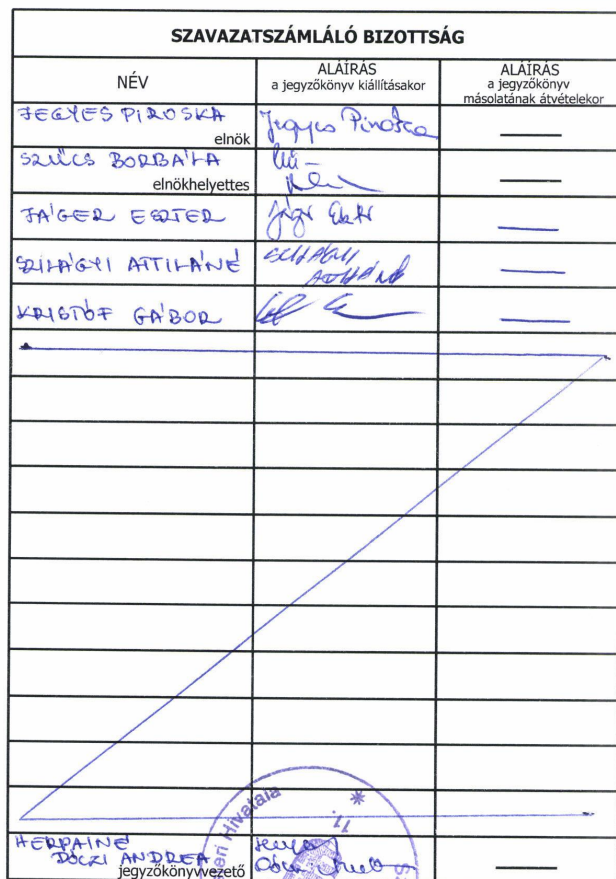 SZAVAZATSZÁMLÁLÓ BIZOTTSÁG
NÉV
ALÁÍRÁS
a jegyzőkönyv kiállításakor
ALÁÍRÁS
a jegyzőkönyv
másolatának átvételekor
JEGYES PIROSKA
elnök
Jegyes Piroska
SZŰCS BORBÁLA
elnökhelyettes
JÁGER ESZTER
Jáger Eszter
SZILÁGYI ATTILÁNÉ
SZILÁGYI
ATTILÁNÉ
KRISTÓF GÁBOR
HERPAINÉ
DÓCZI ANDREA
jegyzőkönyvvezető
meri Hivatala
11.